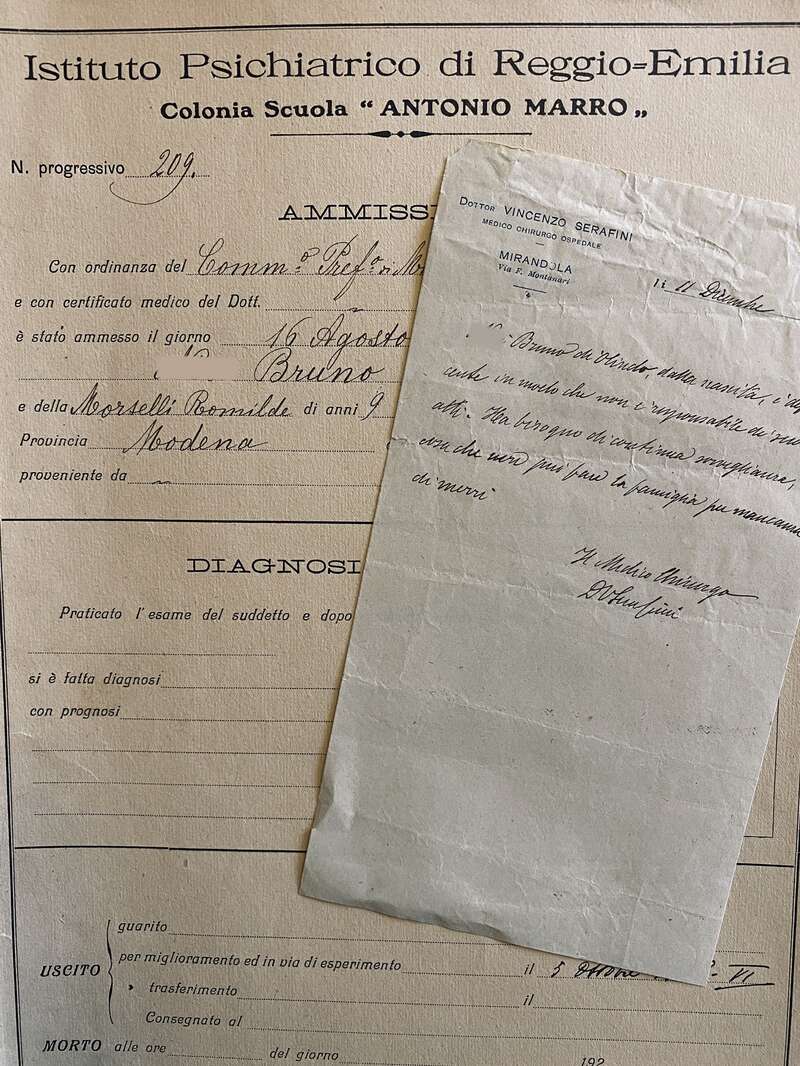 Istituto Psichiatrico di Reggio=Emilia
Colonia Scuola “ ANTONIO MARRO „
N. progressivo 209.
AMMISSI
Con ordinanza del Comm.º Pref.º di Mo
e con certificato medico del Dott.
è stato ammesso il giorno 16 Agosto
Bruno
e della Morselli Romilde di anni 9
Provincia Modena
proveniente da
DIAGNOSI
Praticato l'esame del suddetto e dopo
si è fatta diagnosi
con prognosi
USCITO
guarito
per miglioramento ed in via di esperimento il 5 Ottobre VI
» trasferimento il
Consegnato al
MORTO alle ore del giorno 192
DOTTOR VINCENZO SERAFINI
MEDICO CHIRURGO OSPEDALE
MIRANDOLA
Via F. Montanari
li 11 Dicembre
Bruno di Olindo, dalla nascita, è
cente in modo che non è risponsabile de' suoi
atti. Ha bisogno di continua sorveglianza,
cosa che non può fare la famiglia per mancanza
di mezzi
Il Medico Chirurgo
DVSerafini